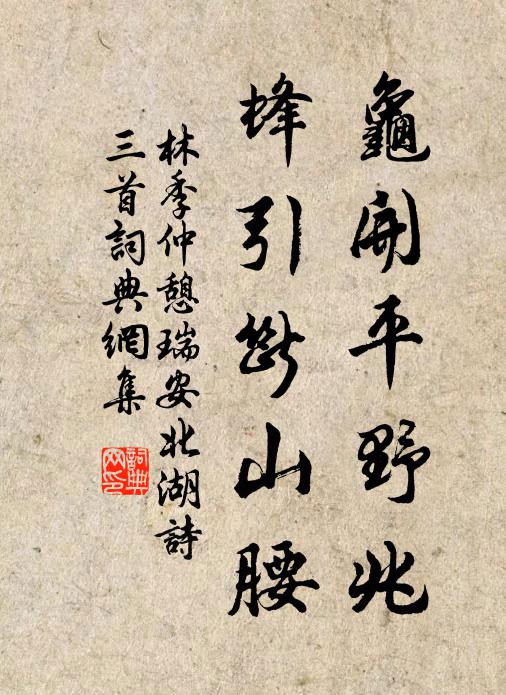 龜開平野兆
蜂引斷山腰
林季仲憩瑞安北湖詩
三首詞典網集
詞典网印